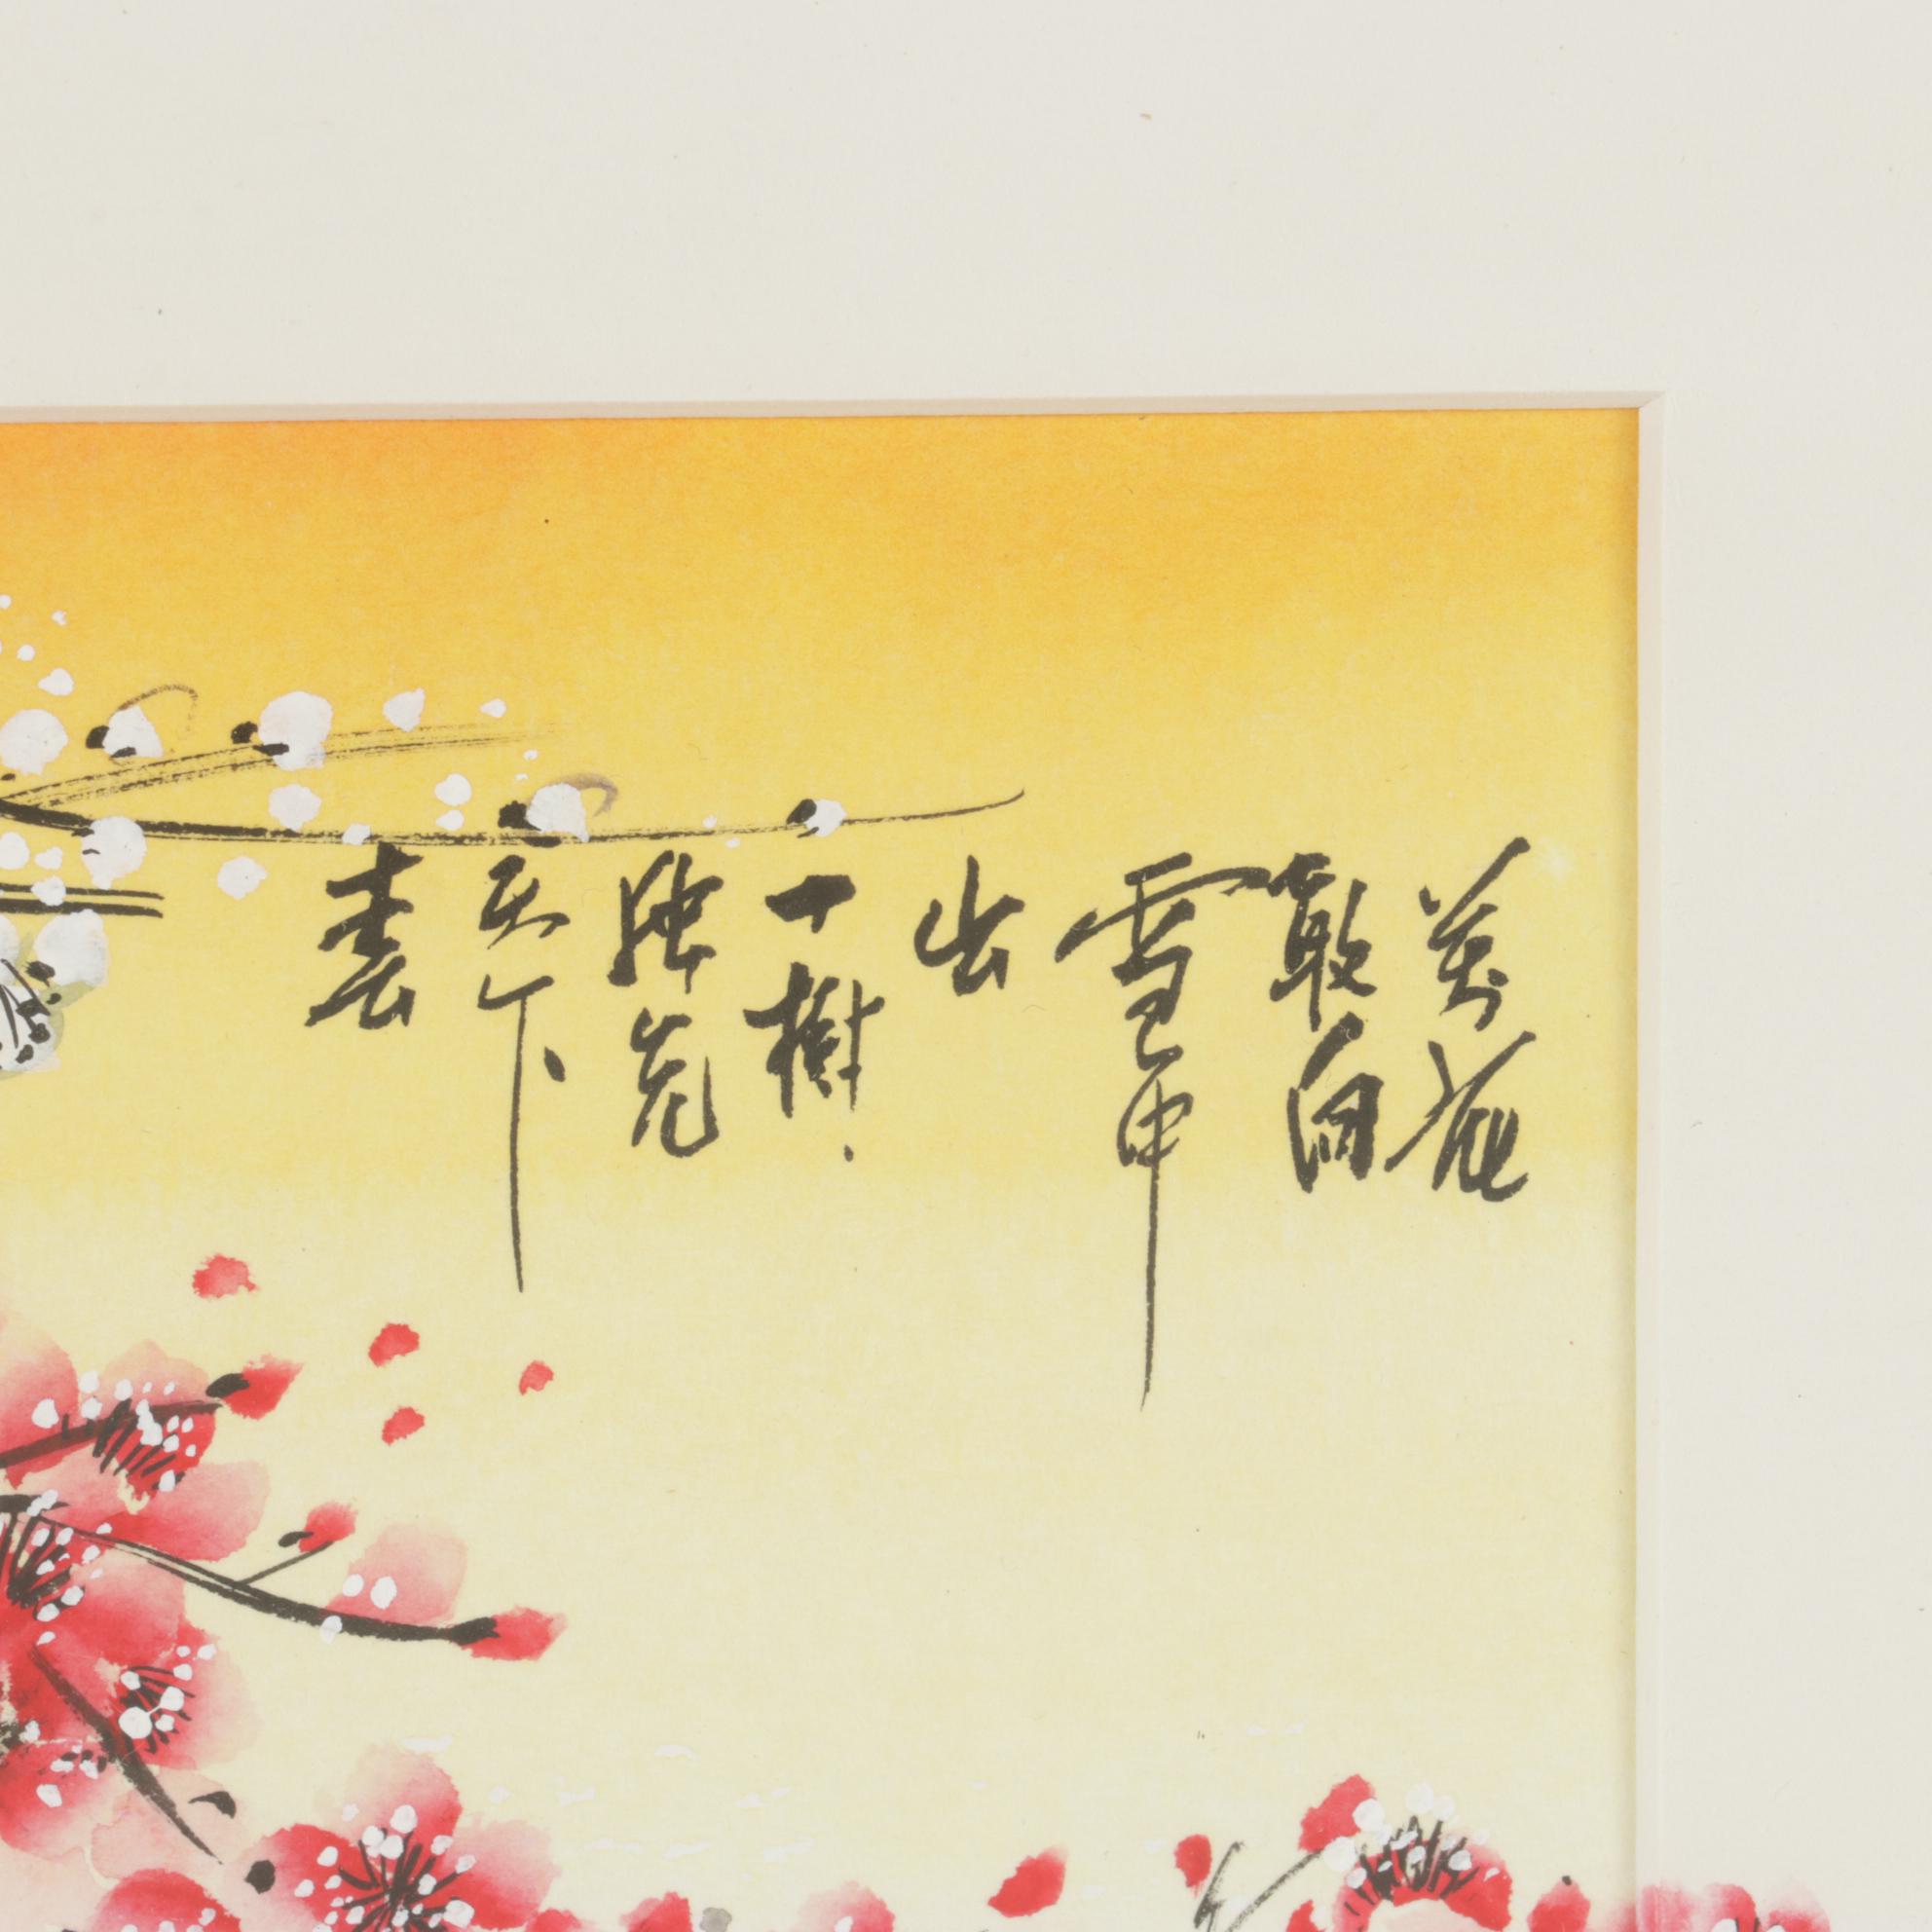 萬花
敢向
雪中
出
一樹
獨先
天下
春